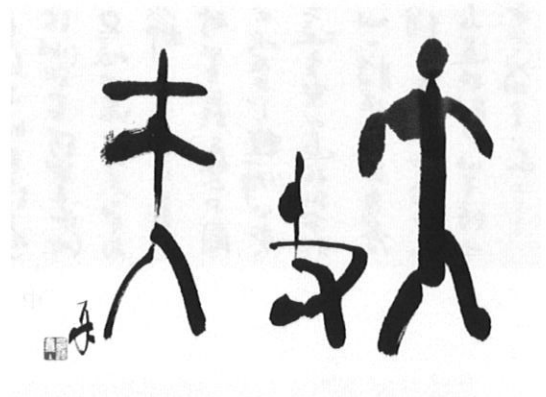 大丈夫